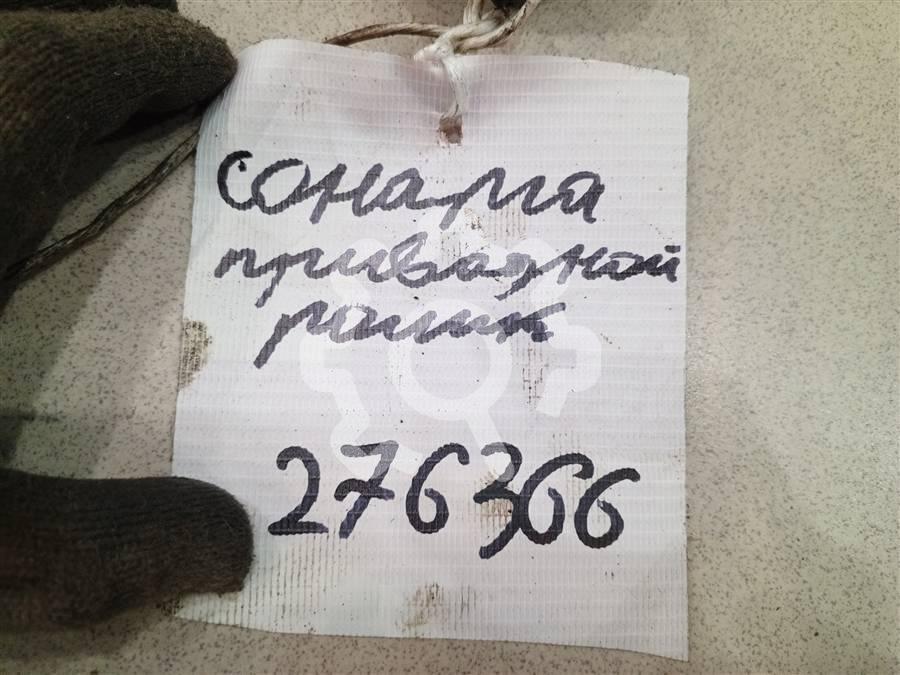 Соната
приводной
ролик
276366